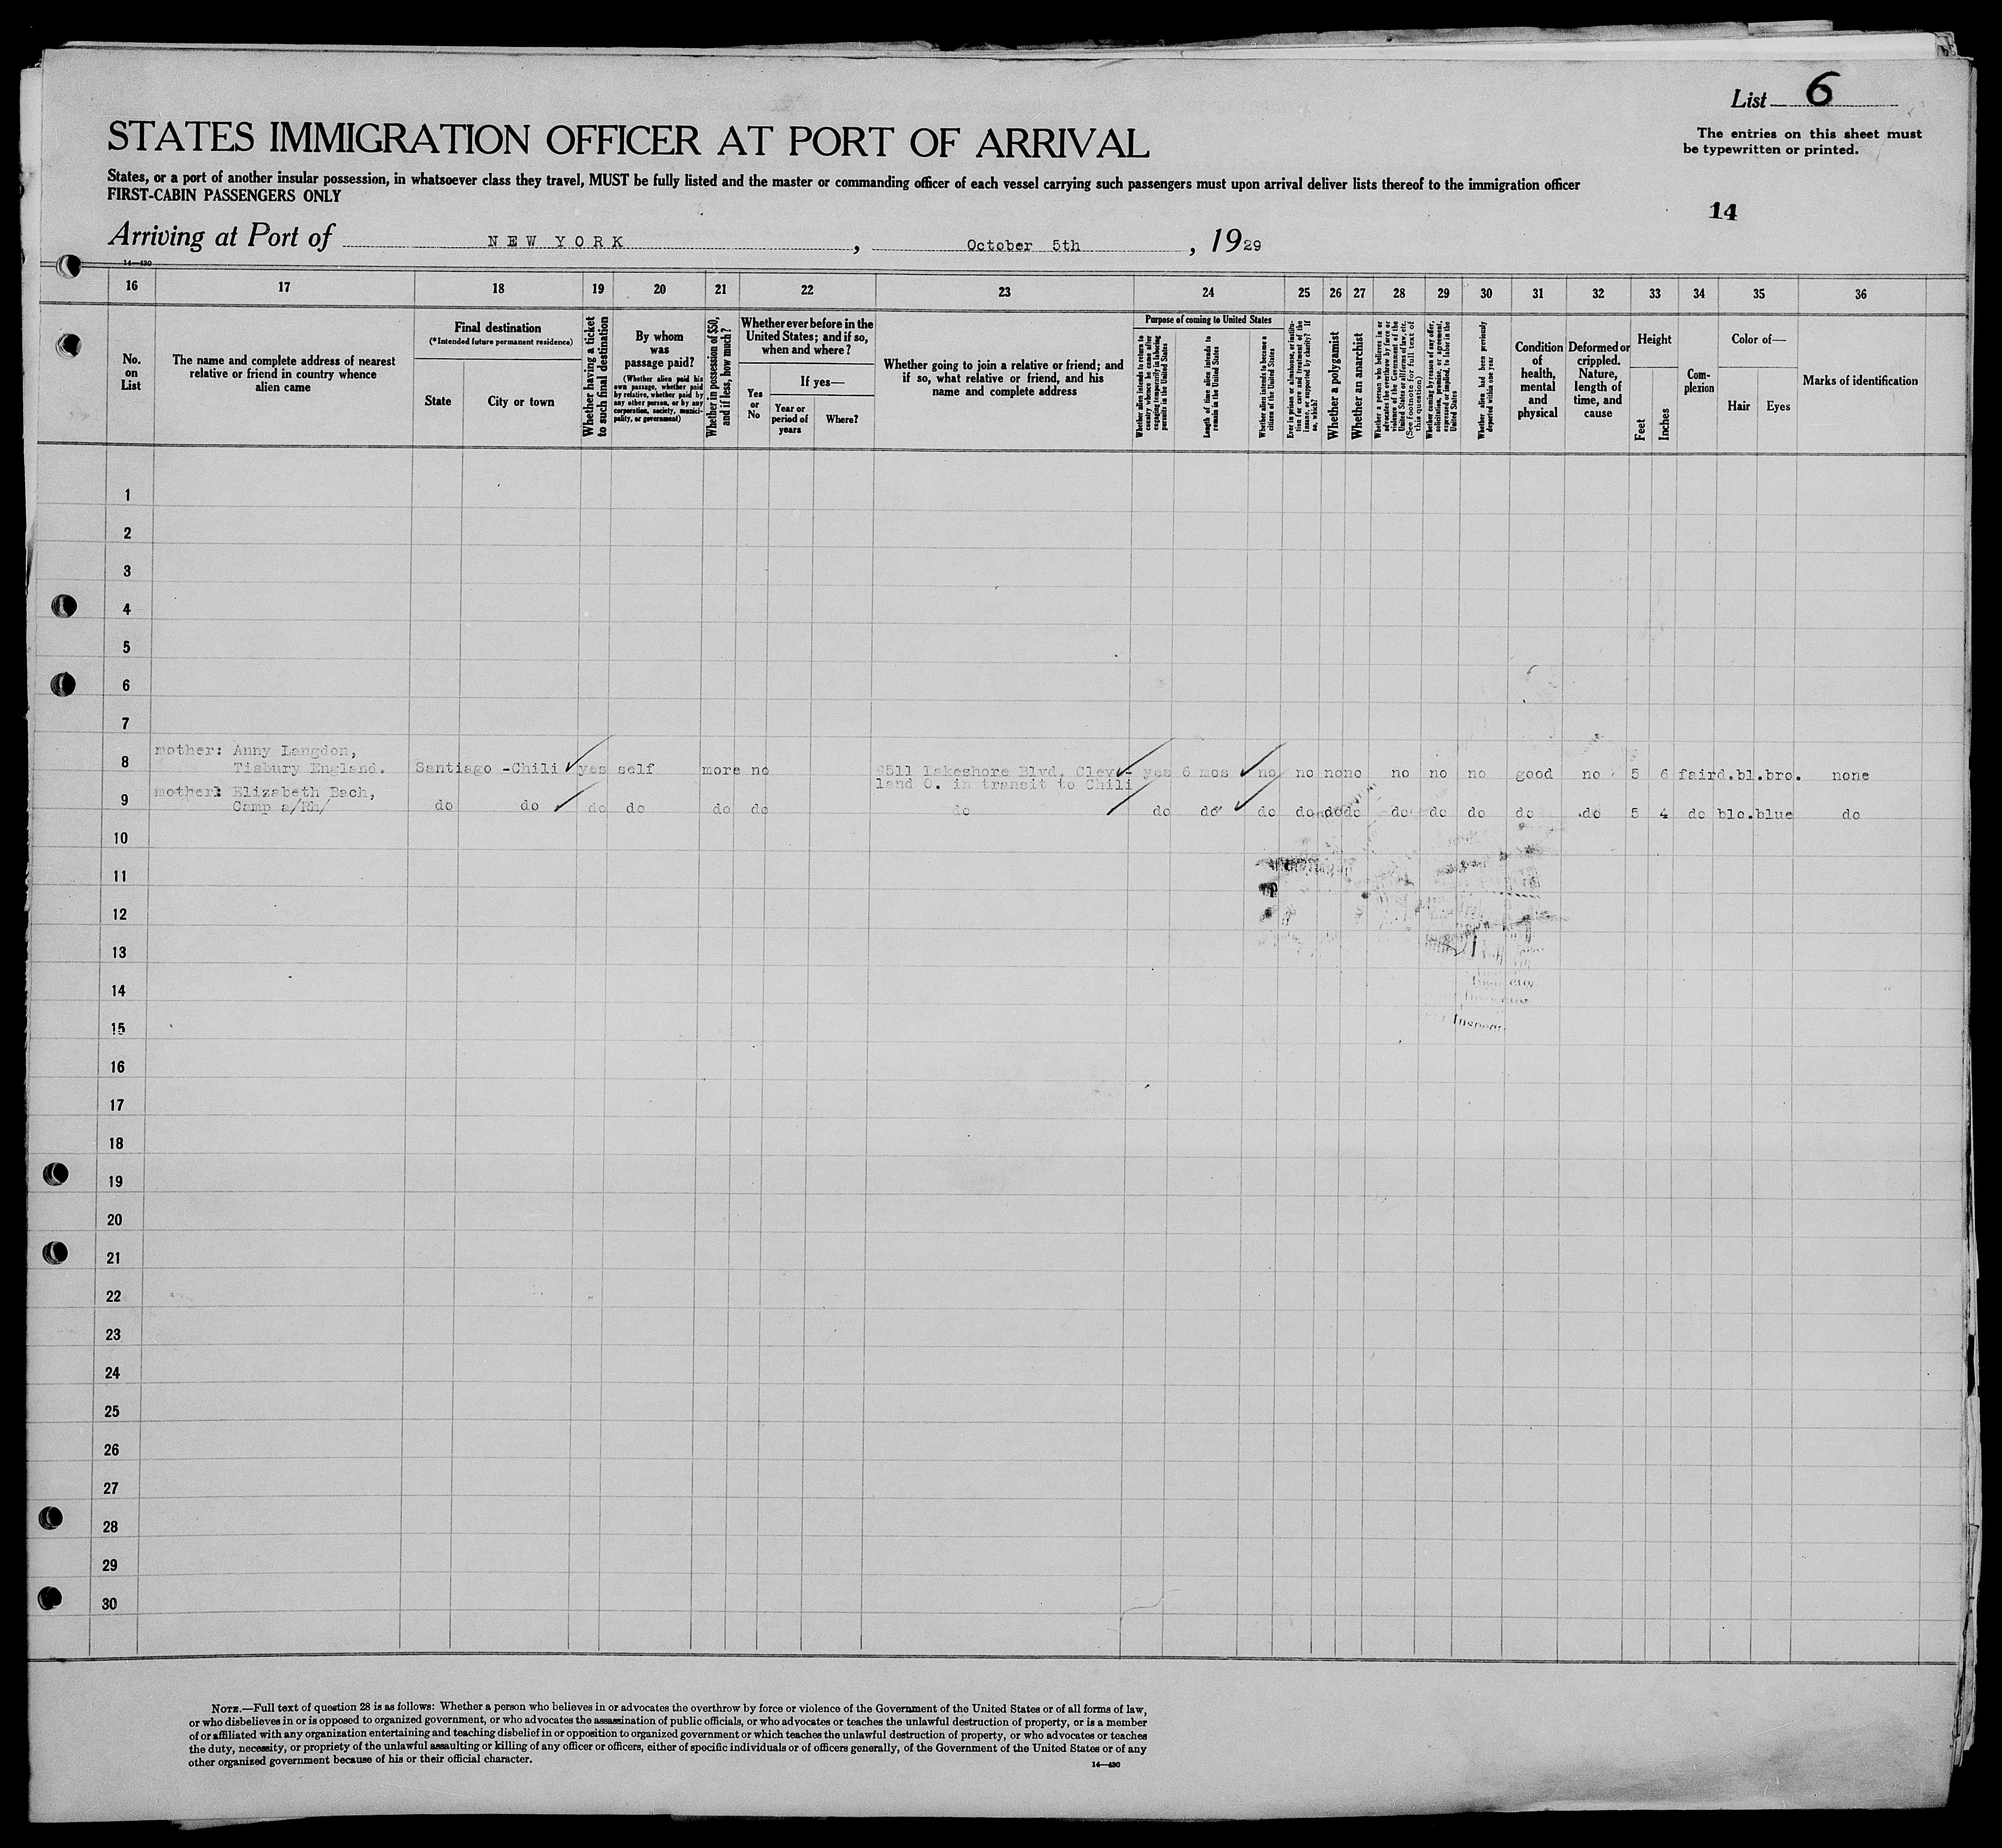 List 6
STATES IMMIGRATION OFFICER AT PORT OF ARRIVAL
The entries on this sheet must
be typewritten or printed.
States, or a port of another insular possession, in whatsoever class they travel, MUST be fully listed and the master or commanding officer of each vessel carrying such passengers must upon arrival deliver lists thereof to the immigration officer
FIRST-CABIN PASSENGERS ONLY
14
Arriving at Port of NEW YORK, October 5th, 1929
14—430
16 17 18 19 20 21 22 23 24 25 26 27 28 29 30 31 32 33 34 35 36
No.
on
List
The name and complete address of nearest
relative or friend in country whence
alien came
Final destination
(*Intended future permanent residence)
State
City or town
Whether having a ticket
to such final destination
By whom
was
passage paid?
(Whether alien paid his
own passage, whether paid
by relative, whether paid by
any other person, or by any
corporation, society, munici-
pality, or government)
Whether in possession of $50,
and if less, how much?
Whether ever before in the
United States; and if so,
when and where?
Yes
or
No
If yes—
Year or
period of
years
Where?
Whether going to join a relative or friend; and
if so, what relative or friend, and his
name and complete address
Purpose of coming to United States
Whether alien intends to return to
country whence he came after
engaging temporarily in laboring
pursuits in the United States
Length of time alien intends to
remain in the United States
Whether alien intends to become a
citizen of the United States
Ever in prison or almshouse, or institu-
tion for care and treatment of the
insane, or supported by charity? If
so, which?
Whether a polygamist
Whether an anarchist
Whether a person who believes in or
advocates the overthrow by force or
violence of the Government of the
United States or all forms of law, etc.
(See footnote for full text of
this question)
Whether coming by reason of any offer,
solicitation, promise, or agreement,
expressed or implied, to labor in the
United States
Whether alien had been previously
deported within one year
Condition
of
health,
mental
and
physical
Deformed or
crippled.
Nature,
length of
time, and
cause
Height
Feet
Inches
Com-
plexion
Color of—
Hair
Eyes
Marks of identification
1
2
3
4
5
6
7
mother: Anny Langdon,
8 Tisbury England. Santiago -Chili yes self more no 9511 Lakeshore Blvd. Cleve- yes 6 mos no no no no no no no good no 5 6 fair d.bl. bro. none
land O. in transit to Chili
mother: Elizabeth Bach,
9 Camp a/Rh/ do do do do do do do do do do do do do do do do do do 5 4 do blo. blue do
10
11
12
13
14
15
16
17
18
19
20
21
22
23
24
25
26
27
28
29
30
NOTE.—Full text of question 28 is as follows: Whether a person who believes in or advocates the overthrow by force or violence of the Government of the United States or of all forms of law,
or who disbelieves in or is opposed to organized government, or who advocates the assassination of public officials, or who advocates or teaches the unlawful destruction of property, or is a member
of or affiliated with any organization entertaining and teaching disbelief in or opposition to organized government or which teaches the unlawful destruction of property, or who advocates or teaches
the duty, necessity, or propriety of the unlawful assaulting or killing of any officer or officers, either of specific individuals or of officers generally, of the Government of the United States or of any
other organized government because of his or their official character.
14—430